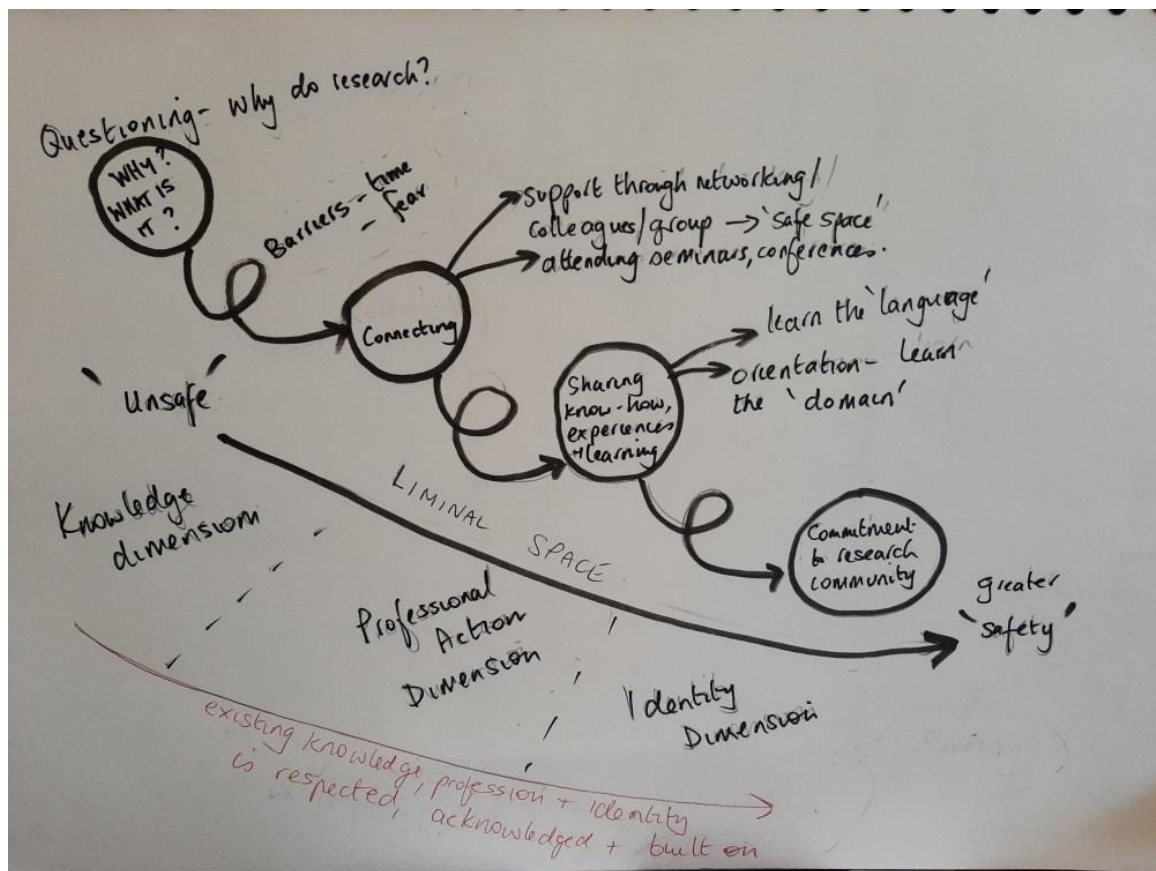 Questioning - why do research?
WHY?
WHAT IS
IT?
Barriers - time
- fear
Connecting
support through networking/
colleagues/group → 'safe space'
attending seminars, conferences.
Sharing
know-how,
experiences
+ learning
learn the 'language'
orientation - learn
the 'domain'
Commitment
to research
community
'Unsafe'
LIMINAL
SPACE
greater
'safety'
Knowledge
dimension
Professional
Action
Dimension
Identity
Dimension
existing knowledge, profession + identity
is respected, acknowledged + built on